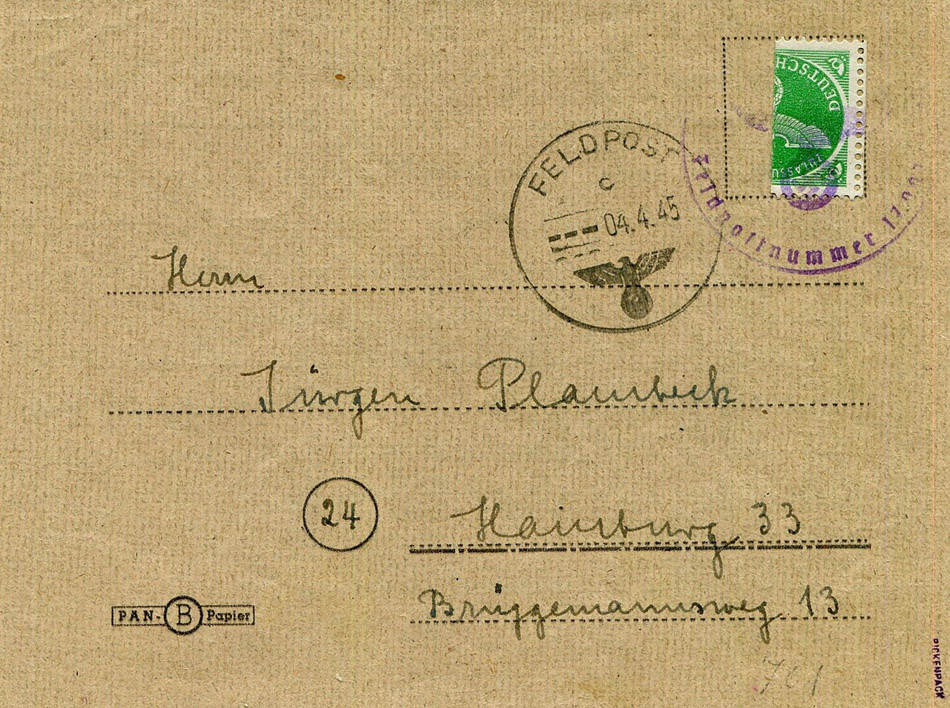 DEUTSCH
ZULASSU
FELDPOST
c
04.4.45
Feldpostnummer
Herrn
Jürgen Plambeck
24
Hamburg 33
Brüggemannsweg 13
PAN- B Papier
701
RICKENPACK